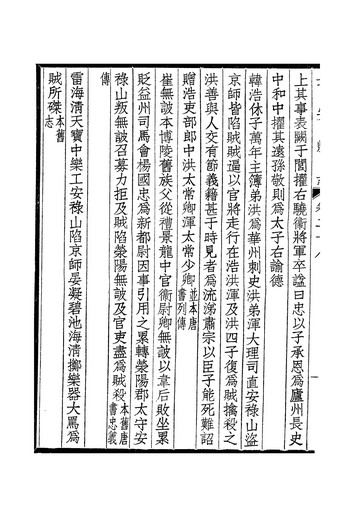 上其事表闕于閭擢右驍衞將軍卒諡曰忠以子承恩爲廬州長史
中和中擢其遠孫敬則爲太子右諭德
韓浩休子萬年主簿弟洪爲華州刺史洪弟渾大理司直安祿山盜
京師皆陷賊賊逼以官將走行在浩洪渾及洪四子復爲賊擒殺之
洪善與人交有節義籍甚于時見者爲流涕肅宗以臣子能死難詔
贈浩吏部郎中洪太常卿渾太常少卿並本唐書列傳
崔無詖本博陵舊族父從禮景龍中官衞尉卿無詖以韋后敗坐累
貶益州司馬會楊國忠爲新都尉因事引用之累轉滎陽郡太守安
祿山叛無詖召募力拒及賊陷滎陽無詖及官吏盡爲賊殺本舊唐書忠義
傳
雷海淸天寶中樂工安祿山陷京師晏凝碧池海淸擲樂器大罵爲
賊所磔本舊志